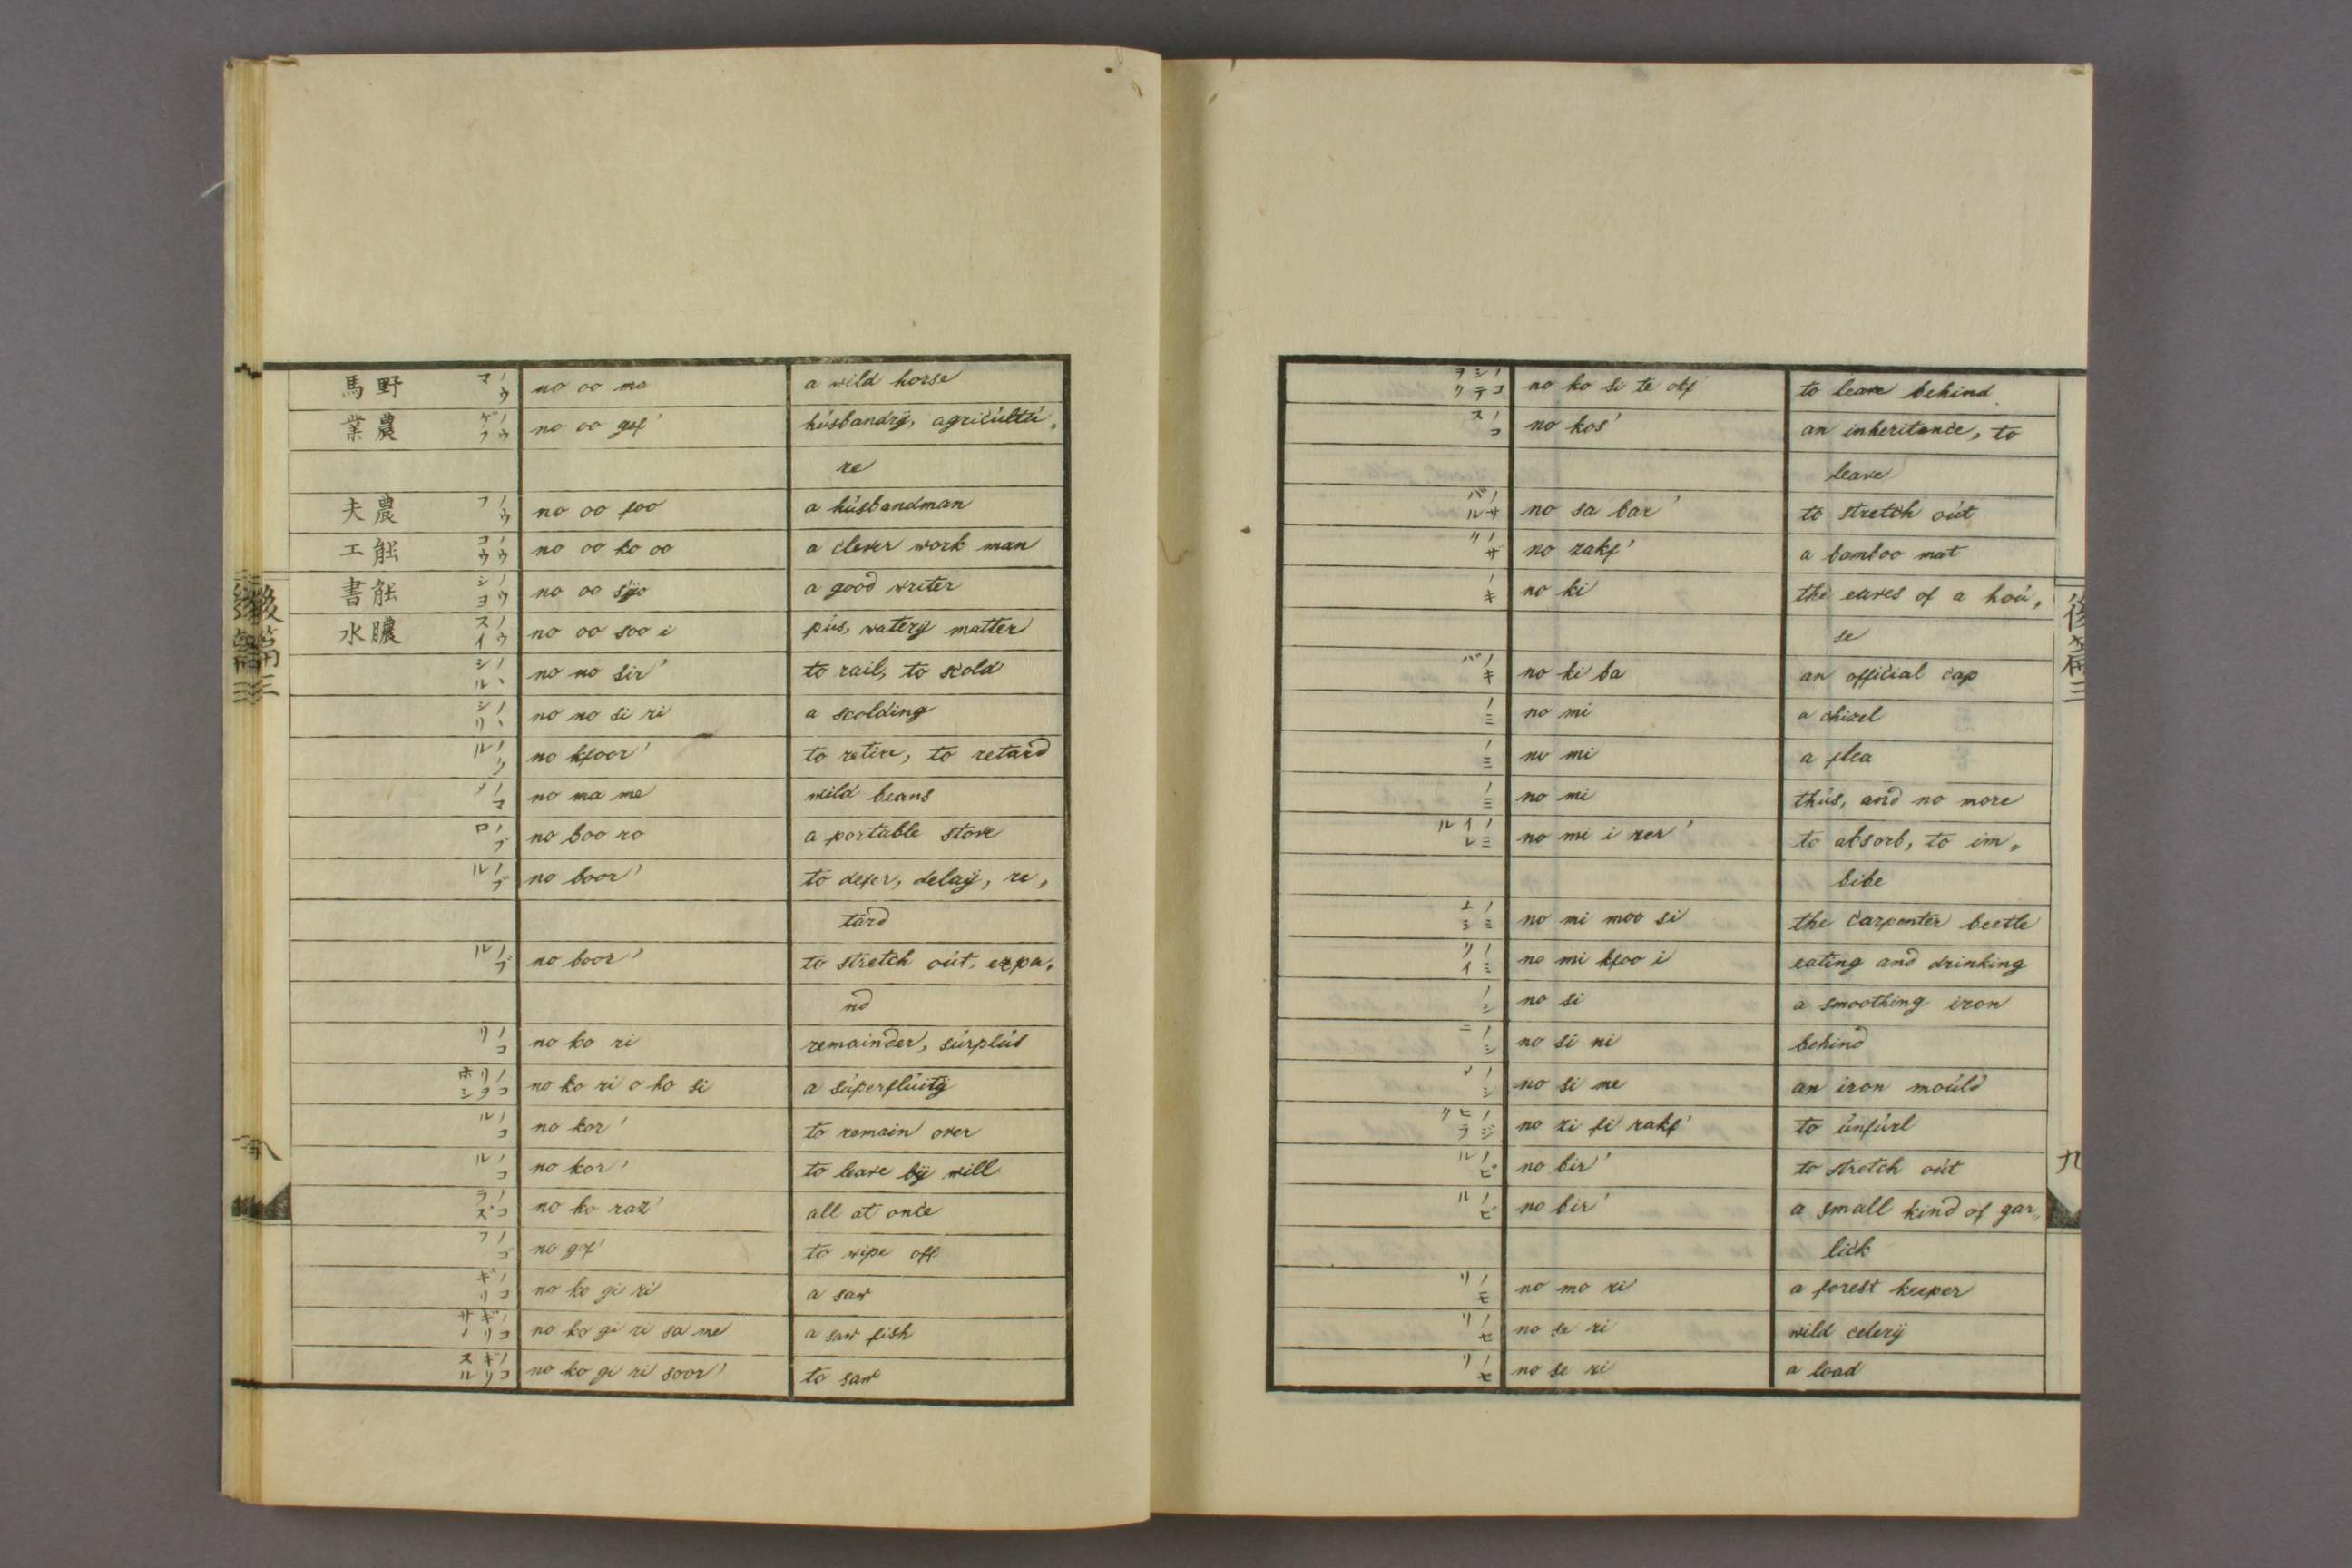 野馬 ノウマ no oo ma a wild horse
農業 ノウゲフ no oo gef' húsbandrÿ, agricúltú„
re
農夫 ノウフ no oo foo a húsbandman
能工 ノウコウ no oo ko oo a clever work man
能書 ノウシヨ no oo sÿo a good writer
膿水 ノウスイ no oo soo i pús, waterÿ matter
ノヽシル no no sir' to rail, to scold
ノヽシリ no no si ri a scolding
ノクル no kfoor' to retire, to retard
ノマメ no ma me wild beans
ノブロ no boo ro a portable stove
ノブル no boor' to defer, delaÿ, re„
tard
ノブル no boor' to stretch oút, expa„
nd
ノコリ no ko ri remainder, súrplús
ノコリヲホシ no ko ri o ho si a súperflúitÿ
ノコル no kor' to remain over
ノコル no kor' to leave bÿ will
ノコラズ no ko raz' all at once
ノゴフ no gof' to wipe off
ノコギリ no ko gi ri a saw
ノコギリサメ no ko gi ri sa me a saw fish
ノコギリスル no ko gi ri soor' to saw
後篇三
八
ノコシテヲク no ko si te okf to leave behind
ノコス no kos' an inheritance, to
leave
ノサバル no sa bar' to stretch oút
ノザク no zakf' a bamboo mat
ノキ no ki the eaves of a hoú„
se
ノキバ no ki ba an official cap
ノミ no mi a chizel
ノミ no mi a flea
ノミ no mi thús, and no more
ノミイレル no mi i rer' to absorb, to im„
bibe
ノミムシ no mi moo si the carpenter beetle
ノミクイ no mi kfoo i eating and drinking
ノシ no si a smoothing iron
ノシニ no si ni behind
ノシメ no si me an iron moúld
ノジヒラク no zi fi rakf' to únfúrl
ノビル no bir' to stretch oút
ノビル no bir' a small kind of gar„
lick
ノモリ no mo ri a forest keeper
ノセリ no se ri wild celerÿ
ノセリ no se ri a load
後篇三
九